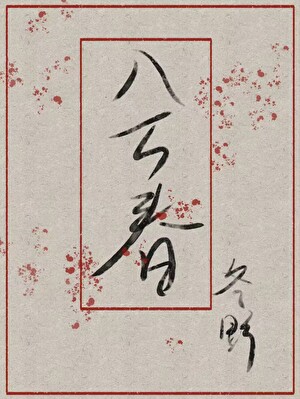 八云春
冬野